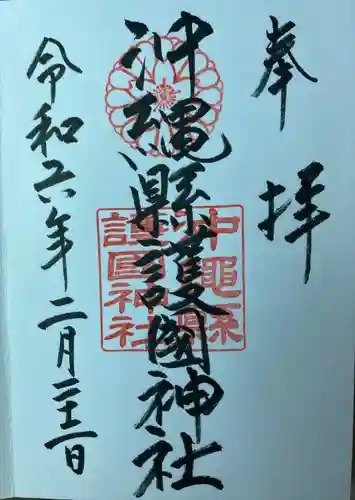 奉拝
沖縄縣護國神社
沖縄縣護国神社
令和六年二月二十一日